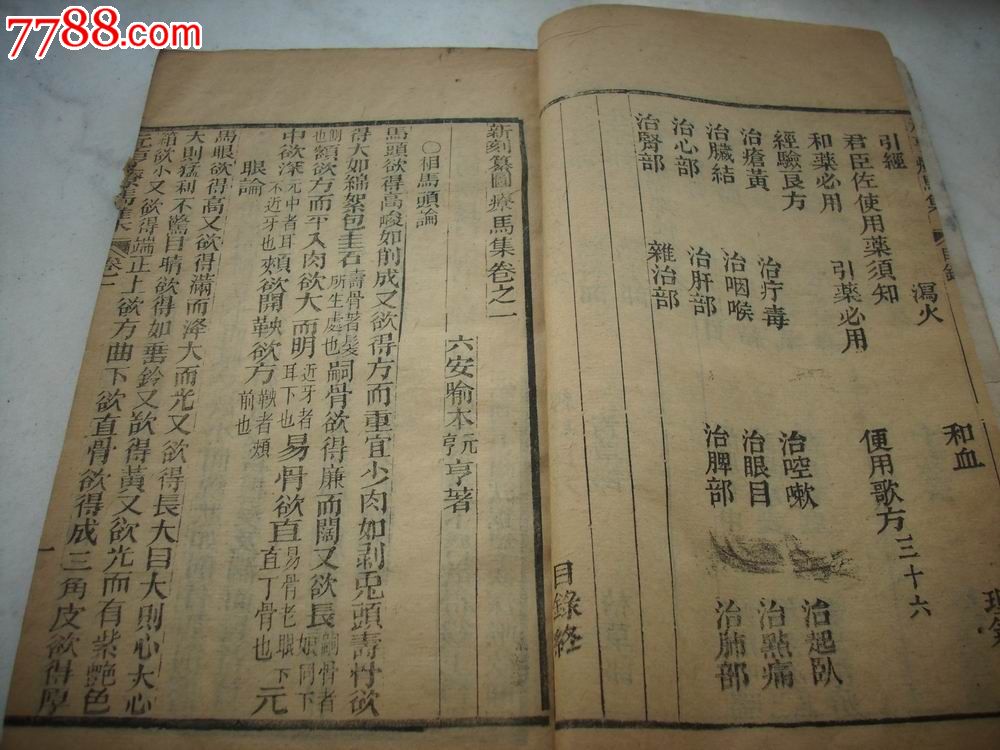 7788.com
引經 瀉火 和血
君臣佐使用藥須知
和藥必用 引藥必用 便用歌方三十六
經驗良方
治瘡黃 治疔毒 治啌嗽 治起臥
治臟結 治咽喉 治眼目 治點痛
治心部 治肝部 治脾部 治肺部
治腎部 雜治部
目錄終
新刻纂圖療馬集卷之一
六安喻本元亨著
〇相馬頭論
馬頭欲得高峻如削成又欲得方而重宜少肉如剥兎頭壽骨欲
得大如綿絮包圭石壽骨者髮所生處也嗣骨欲得廉而闊又欲長嗣骨者頰同下側也
額欲方而平入肉欲大而明近牙者耳下也易骨欲直易骨老眼下直丁骨也元
中欲深元中者耳不近牙也頰欲開鞅欲方鞅者頰前也
眼論
馬眼欲得高又欲得滿而澤大而光又欲得長大目大則心大心
大則猛利不驚目睛欲得如垂鈴又欲得黃又欲光而有紫艷色
箱欲小又欲得端正上欲方曲下欲直骨欲得成三角皮欲得厚
卷一
一